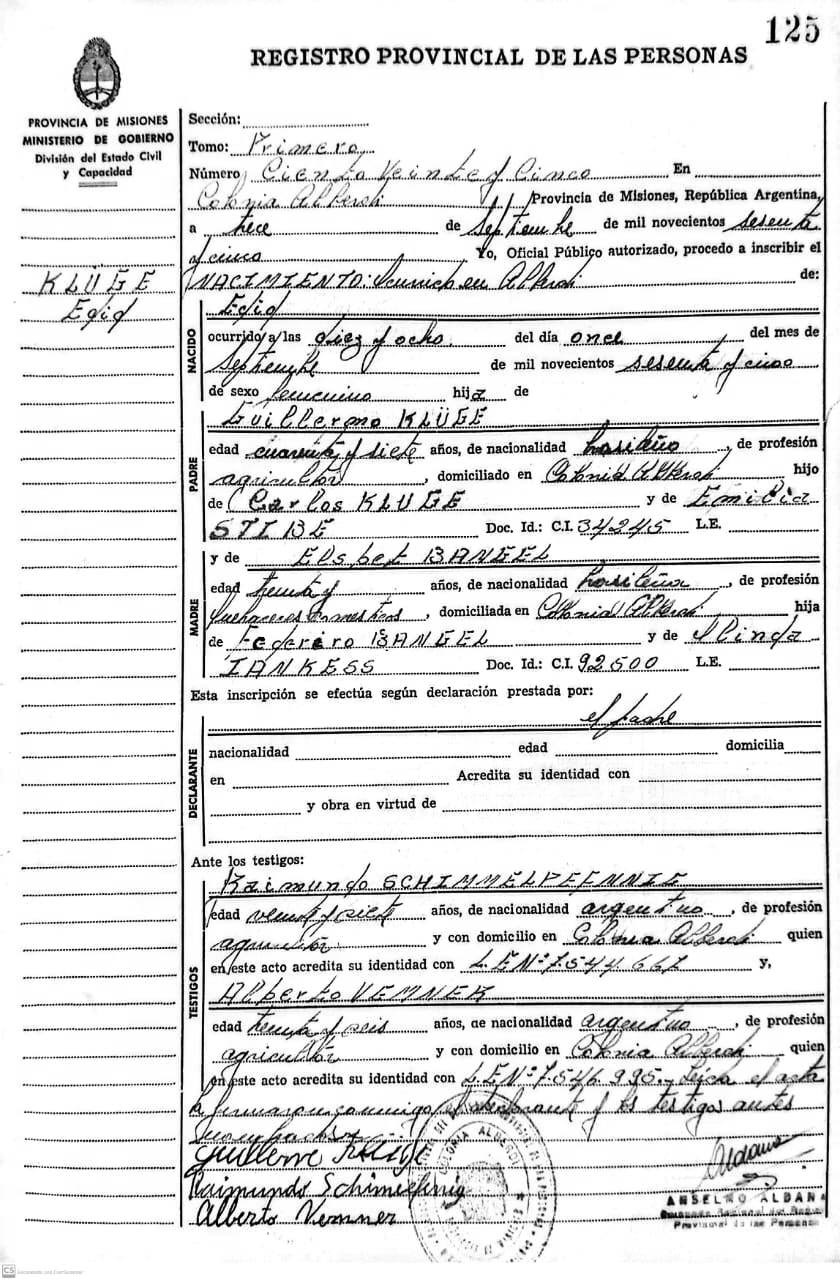 125
REGISTRO PROVINCIAL DE LAS PERSONAS
PROVINCIA DE MISIONES
MINISTERIO DE GOBIERNO
División del Estado Civil
y Capacidad
KLÜGE
Egid
Sección:
Tomo: Primero
Número Ciento Veinte y Cinco En
Colonia Alberdi Provincia de Misiones, República Argentina,
a trece de Septiembre de mil novecientos sesenta
y cinco Yo, Oficial Público autorizado, procedo a inscribir el
NACIMIENTO: ocurrido en Alberdi de:
NACIDO
Egid
ocurrido a las diez y ocho del día once del mes de
Septiembre de mil novecientos sesenta y cinco
de sexo femenino hija de
PADRE
Guillermo KLÜGE
edad cuarenta y siete años, de nacionalidad brasileño, de profesión
agricultor, domiciliado en Colonia Alberdi hijo
de Carlos KLUGE y de Emilia
STIBE Doc. Id.: C.I. 34245 L.E.
MADRE
y de Elsbet BANGEL
edad treinta y años, de nacionalidad brasileña, de profesión
quehaceres domésticos, domiciliada en Colonia Alberdi hija
de Federico BANGEL y de Olinda
IANKESS Doc. Id.: C.I. 92500 L.E.
Esta inscripción se efectúa según declaración prestada por:
el padre
DECLARANTE
nacionalidad edad domicilia
en Acredita su identidad con
y obra en virtud de
Ante los testigos:
TESTIGOS
Raimundo SCHIMMELPFENNIG
edad veinte y siete años, de nacionalidad argentino, de profesión
agricultor y con domicilio en Colonia Alberdi quien
en este acto acredita su identidad con L.E Nº 7.544.667 y,
Alberto VEMNER
edad treinta y seis años, de nacionalidad argentino, de profesión
agricultor y con domicilio en Colonia Alberdi quien
en este acto acredita su identidad con L.E Nº 7.546.995.- Leída el acta
la firmaron conmigo el declarante y los testigos antes
Guillerme Kluge
Raimundo Schimelfenig
Alberto Vemner
COLONIA ALBERDI
Aldana
ANSELMO ALDANA
Provincial de las Personas
CS